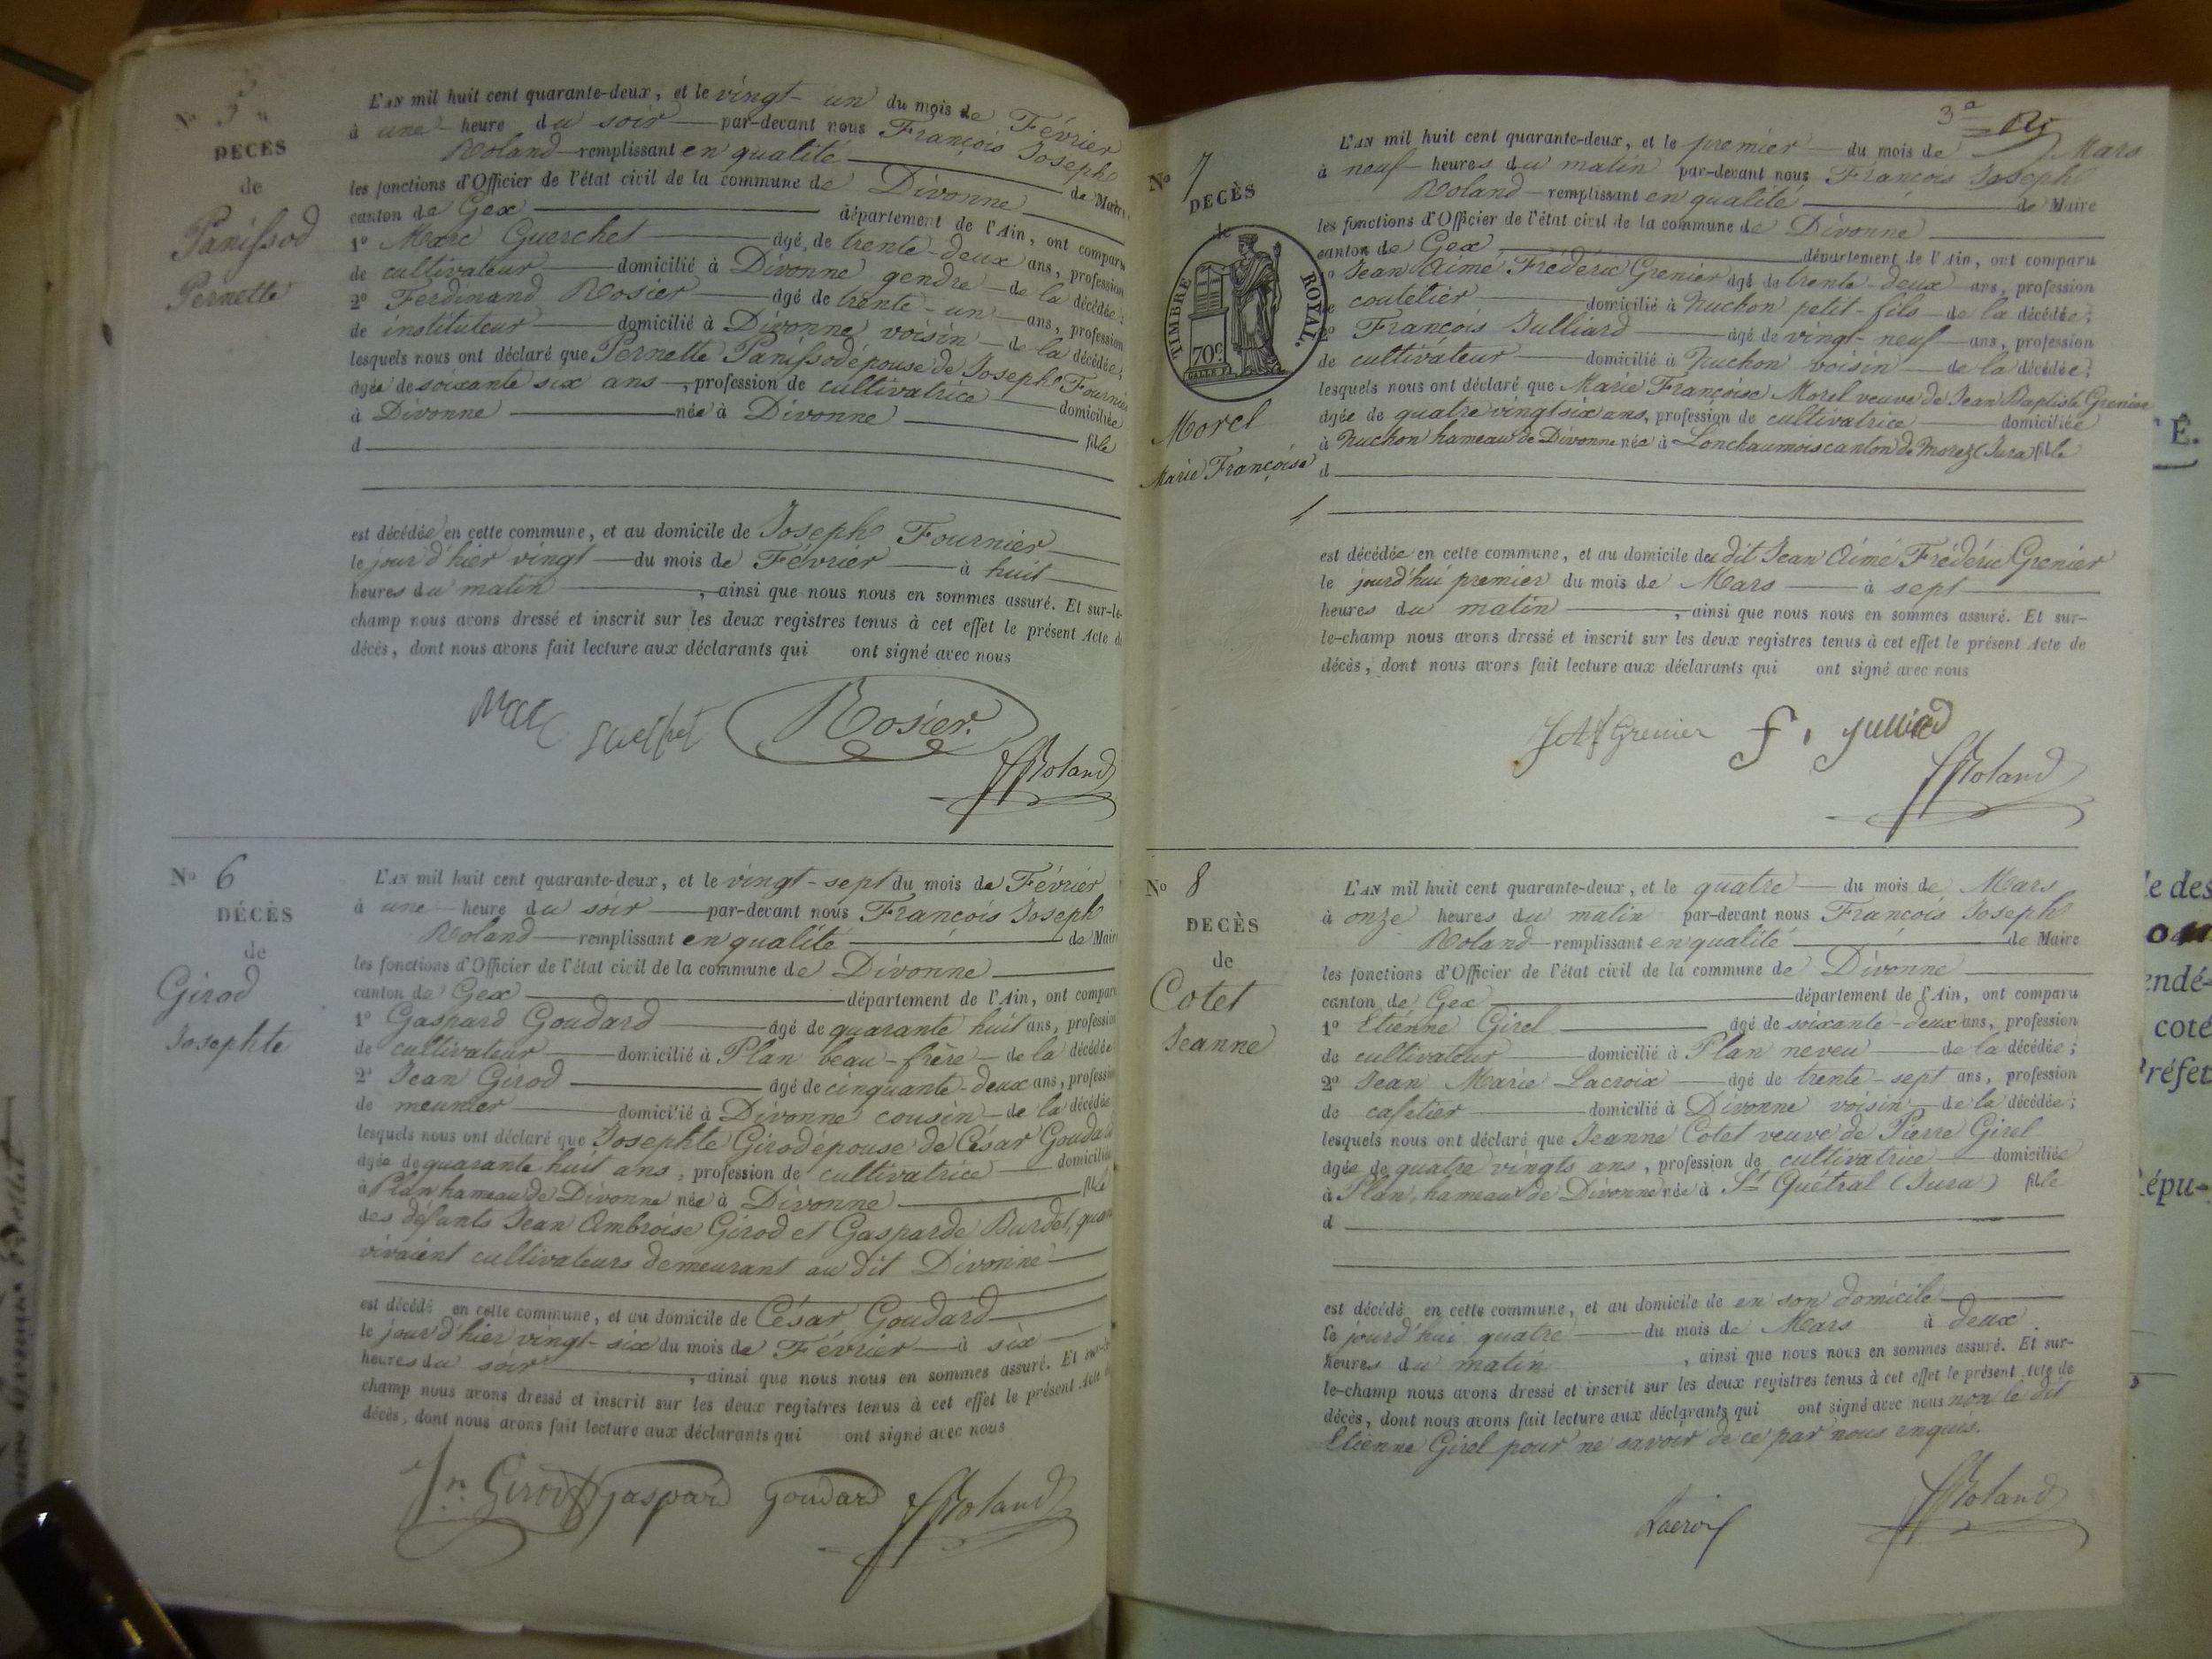 Nº 5
DÉCÈS
de
Panissod
Pernette
L'AN mil huit cent quarante-deux, et le vingt-un du mois de Février
à une heure du soir par-devant nous François Joseph
Roland remplissant en qualité de Maire
les fonctions d'Officier de l'état civil de la commune de Divonne
canton de Gex département de l'Ain, ont comparu
1º Marc Guerchet âgé de trente-deux ans, profession
de cultivateur domicilié à Divonne gendre de la décédée;
2º Ferdinand Rosier âgé de trente-un ans, profession
de instituteur domicilié à Divonne voisin de la décédée;
lesquels nous ont déclaré que Pernette Panissod épouse de Joseph Fournier
âgée de soixante six ans, profession de cultivatrice domiciliée
à Divonne née à Divonne fille
d
est décédée en cette commune, et au domicile de Joseph Fournier
le jour d'hier vingt du mois de Février à huit
heures du matin, ainsi que nous nous en sommes assuré. Et sur-le-
champ nous avons dressé et inscrit sur les deux registres tenus à cet effet le présent Acte de
décès, dont nous avons fait lecture aux déclarants qui ont signé avec nous
Rosier.
Roland
Nº 6
DÉCÈS
de
Girod
Josephte
L'AN mil huit cent quarante-deux, et le vingt-sept du mois de Février
à une heure du soir par-devant nous François Joseph
Roland remplissant en qualité de Maire
les fonctions d'Officier de l'état civil de la commune de Divonne
canton de Gex département de l'Ain, ont comparu
1º Gaspard Goudard âgé de quarante huit ans, profession
de cultivateur domicilié à Plan beau-frère de la décédée
2º Jean Girod âgé de cinquante-deux ans, profession
de meunier domicilié à Divonne cousin de la décédée
lesquels nous ont déclaré que Josephte Girod épouse de César Goudard
âgée de quarante huit ans, profession de cultivatrice domiciliée
à Plan hameau de Divonne née à Divonne fille
des défunts Jean Ambroise Girod et Gasparde Burdet, quand
vivaient cultivateurs demeurant au dit Divonne
est décédé en cette commune, et au domicile de César Goudard
le jour d'hier vingt-six du mois de Février à six
heures du soir, ainsi que nous nous en sommes assuré. Et sur-le-
champ nous avons dressé et inscrit sur les deux registres tenus à cet effet le présent Acte de
décès, dont nous avons fait lecture aux déclarants qui ont signé avec nous
Jn. Girod Gaspard Goudard Roland
3e
Nº 7
DÉCÈS
de
TIMBRE ROYAL.
70c
Morel
Marie Françoise
L'AN mil huit cent quarante-deux, et le premier du mois de Mars
à neuf heures du matin par-devant nous François Joseph
Roland remplissant en qualité de Maire
les fonctions d'Officier de l'état civil de la commune de Divonne
canton de Gex département de l'Ain, ont comparu
1º Jean Aimé Frédéric Grenier âgé de trente-deux ans, profession
de coutelier domicilié à Nuchon petit-fils de la décédée;
2º François Julliard âgé de vingt-neuf ans, profession
de cultivateur domicilié à Nuchon voisin de la décédée;
lesquels nous ont déclaré que Marie Françoise Morel veuve de Jean Baptiste Grenier
âgée de quatre vingt six ans, profession de cultivatrice domiciliée
à Nuchon hameau de Divonne née à Lonchaumois canton de Morez (Jura) fille
d
est décédée en cette commune, et au domicile du dit Jean Aimé Frédéric Grenier
le jourd'hui premier du mois de Mars à sept
heures du matin, ainsi que nous nous en sommes assuré. Et sur-
le-champ nous avons dressé et inscrit sur les deux registres tenus à cet effet le présent Acte de
décès, dont nous avons fait lecture aux déclarants qui ont signé avec nous
Grenier f. Julliard
Roland
Nº 8
DÉCÈS
de
Cotet
Jeanne
L'AN mil huit cent quarante-deux, et le quatre du mois de Mars
à onze heures du matin par-devant nous François Joseph
Roland remplissant en qualité de Maire
les fonctions d'Officier de l'état civil de la commune de Divonne
canton de Gex département de l'Ain, ont comparu
1º Etienne Girel âgé de soixante-deux ans, profession
de cultivateur domicilié à Plan neveu de la décédée;
2º Jean Marie Lacroix âgé de trente-sept ans, profession
de cafetier domicilié à Divonne voisin de la décédée;
lesquels nous ont déclaré que Jeanne Cotet veuve de Pierre Girel
âgée de quatre vingts ans, profession de cultivatrice domiciliée
à Plan, hameau de Divonne née à St Quétral (Jura) fille
d
est décédé en cette commune, et au domicile de en son domicile
le jourd'hui quatre du mois de Mars à deux
heures du matin, ainsi que nous nous en sommes assuré. Et sur-
le-champ nous avons dressé et inscrit sur les deux registres tenus à cet effet le présent Acte de
décès, dont nous avons fait lecture aux déclarants qui ont signé avec nous non le dit
Etienne Girel pour ne savoir de ce par nous enquis.
Lacroix
Roland
É.
le des
endé-
coté
Préfet
Répu-